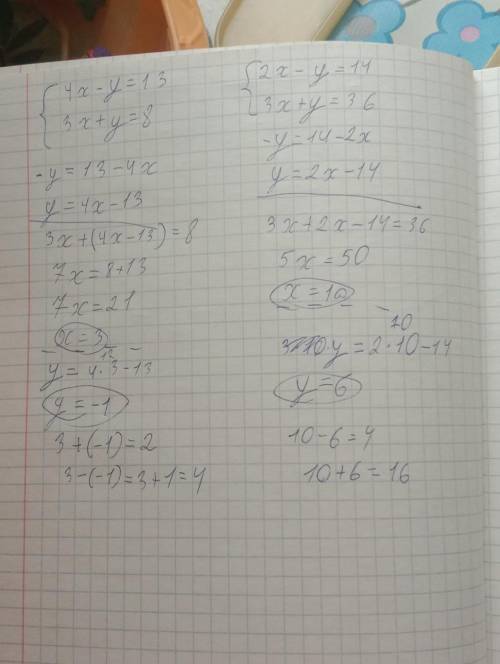 4x - y = 13
3x + y = 8
-y = 13 - 4x
y = 4x - 13
3x + (4x - 13) = 8
7x = 8 + 13
7x = 21
x = 3
12
y = 4 · 3 - 13
y = -1
3 + (-1) = 2
3 - (-1) = 3 + 1 = 4
2x - y = 14
3x + y = 36
-y = 14 - 2x
y = 2x - 14
3x + 2x - 14 = 36
5x = 50
x = 10
20
y = 2 · 10 - 14
y = 6
10 - 6 = 4
10 + 6 = 16